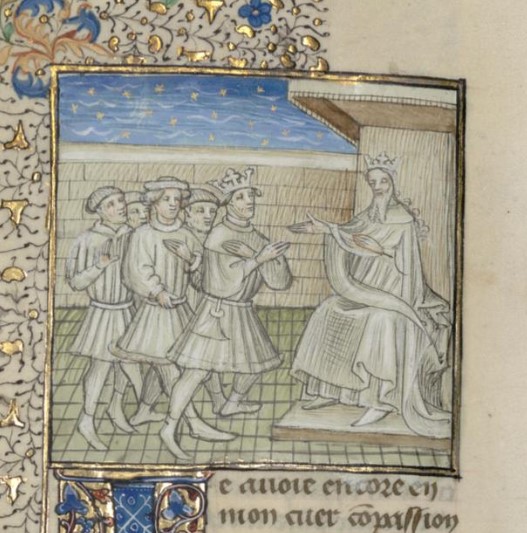 e auoie encore en
mon cuer cōpassion